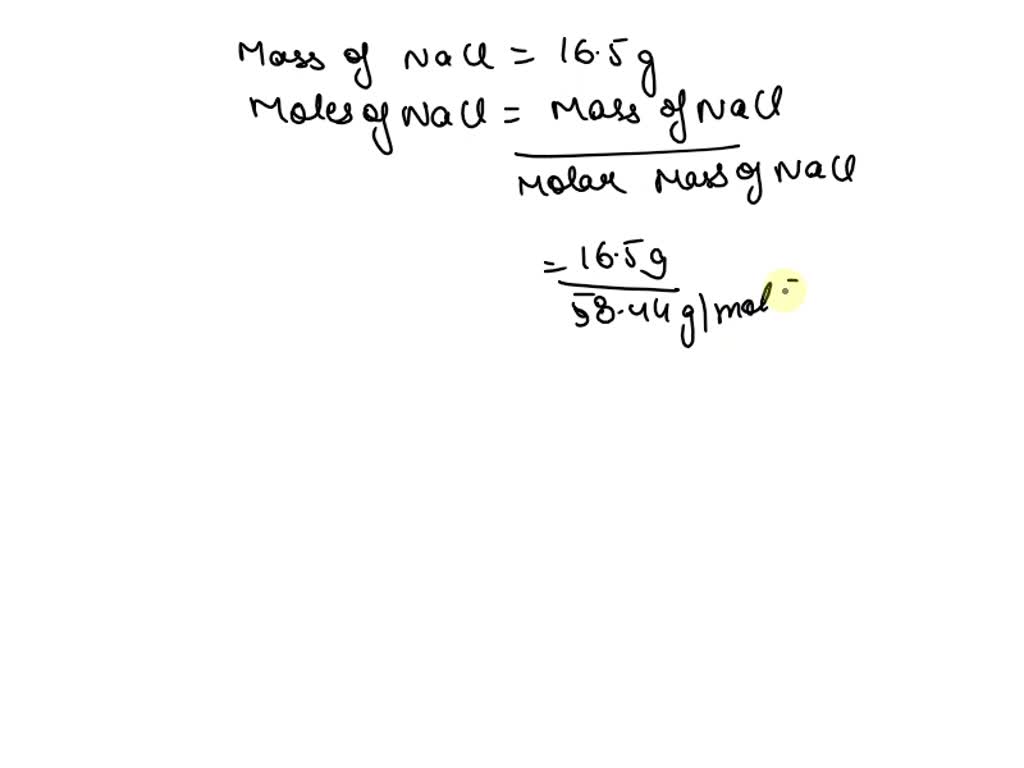 Mass of NaCl = 16.5g
Moles of NaCl = Mass of NaCl
Molar Mass of NaCl
= 16.5g
58.44g/mol =